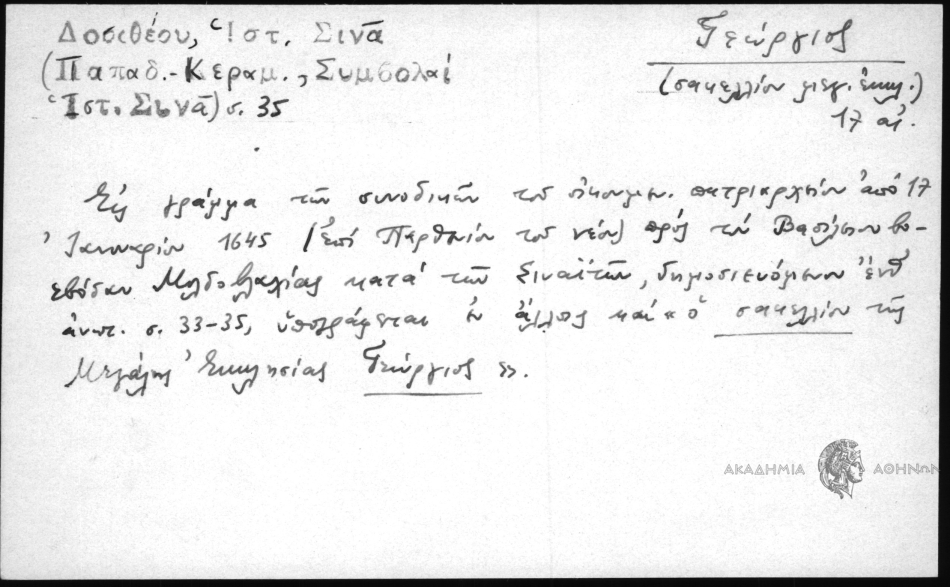 Δοσιθέου, Ἱστ. Σινᾶ
(Παπαδ.-Κεραμ., Συμβολαὶ
Ἱστ. Σινᾶ) σ. 35
Γεώργιος
(σακελλίου μεγ. ἐκκλ.)
17 αἰ.
Εἰς γράμμα τῶν συνοδικῶν τοῦ οἰκουμεν. πατριαρχείου ἀπό 17
Ἰαννουαρίου 1645 (ἐπί Παρθενίου τοῦ νέου) πρός τόν Βασίλειον βο-
εβόδαν Μολδοβλαχίας κατά τῶν Σιναϊτῶν, δημοσιευόμενον ἐνθ'
ἀνωτ. σ. 33-35, ὑπογράφεται ἐν ἄλλοις καί "ὁ σακελλίου τῆς
Μεγάλης Ἐκκλησίας Γεώργιος".
ΑΚΑΔΗΜΙΑ ΑΘΗΝΩΝ